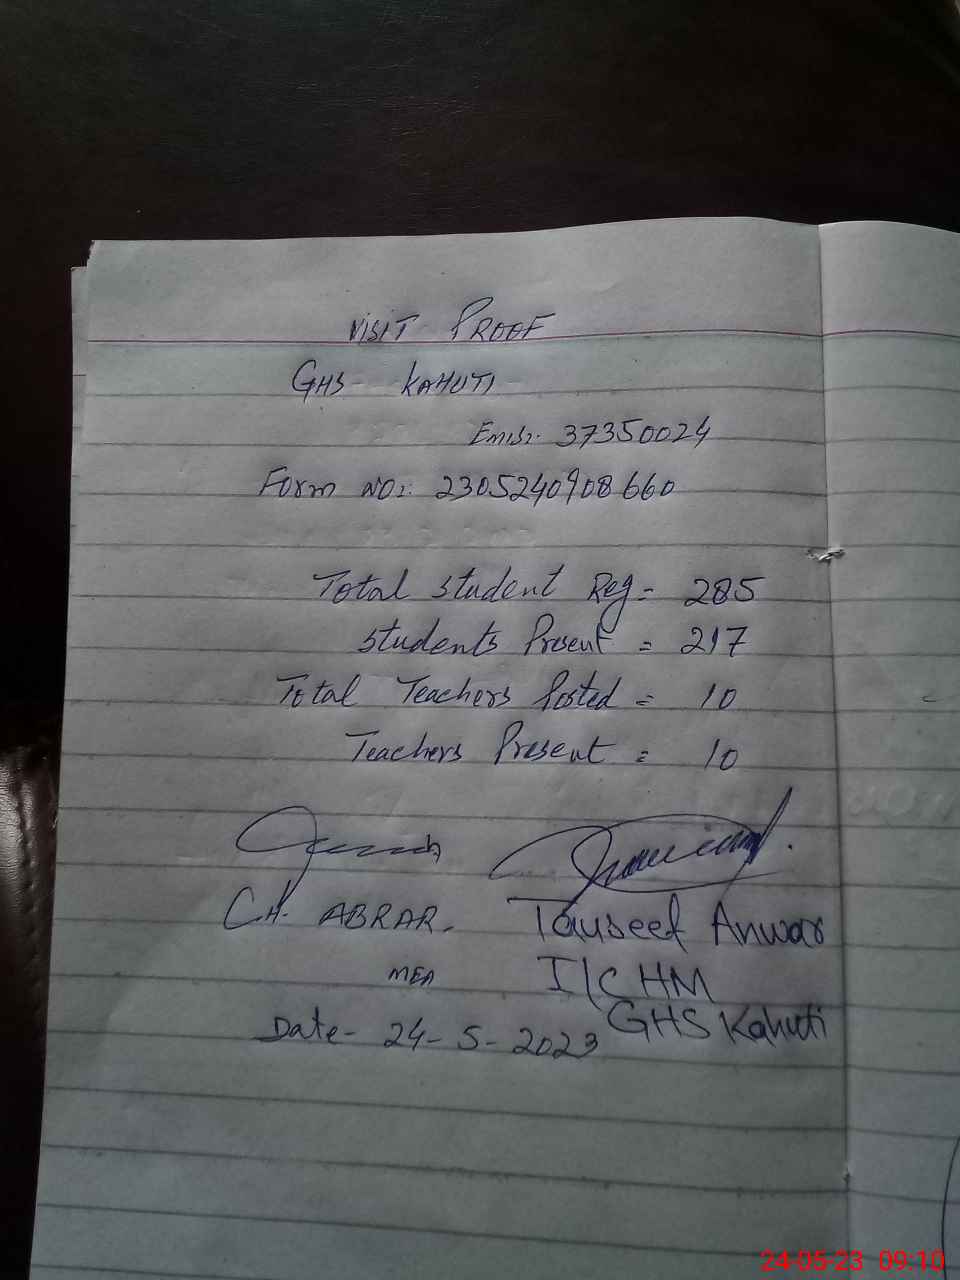 VISIT PROOF
GHS- KAHUTI
Emis:- 37350024
Form NO:- 2305240908660
Total student Reg = 285
students Present = 217
Total Teachers Posted = 10
Teachers Present = 10
CH. ABRAR. Tauseef Anwar
MEA I/C HM
GHS Kahuti
Date- 24-5-2023
24-05-23 09:10